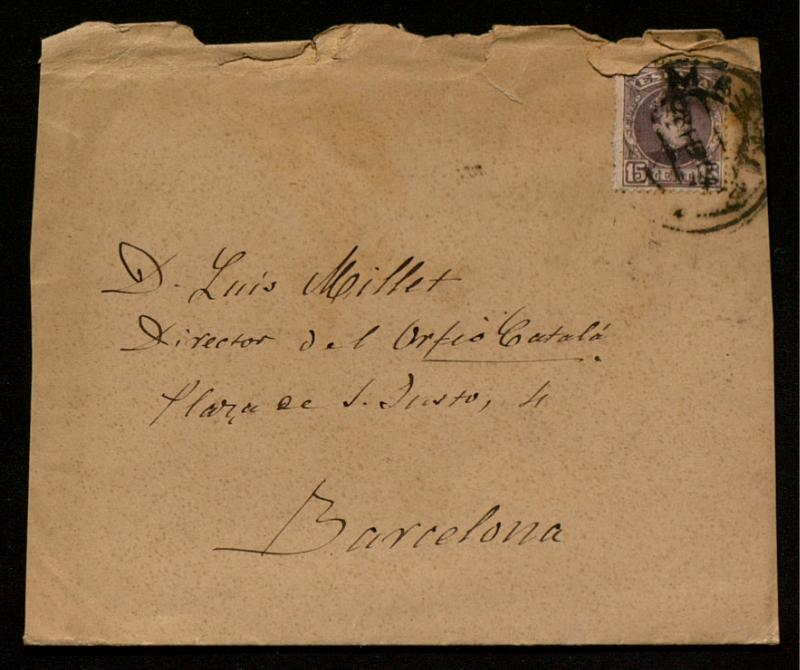 15
D. Luis Millet
Director del Orfeó Catalá
Plaza de S. Justo, 4
Barcelona